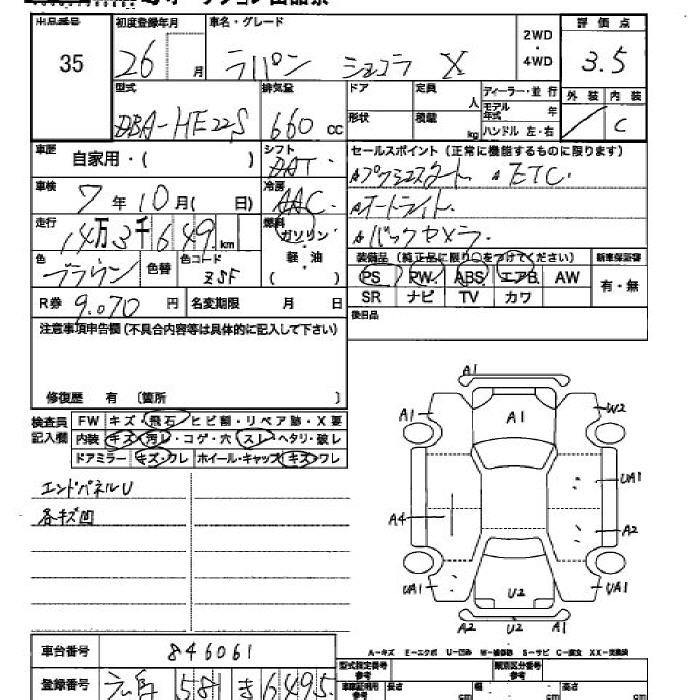 出品番号 初度登録年月 車名・グレード 2WD・4WD 評価点
35 26 月 ラパン ショコラ X 3.5
型式 排気量 ドア 定員 人 ディーラー・並行 外装 内装
DBA-HE22S 660 cc 形状 積載 kg モデル年式 年 ハンドル 左・右 C
車歴 自家用・( ) シフト セールスポイント (正常に機能するものに限ります)
DAT プッシュスタート ETC
車検 7年10月( 日) 冷房 AAC オートライト
走行 14万3千649km 燃料 ガソリン・軽・油 ( ) バックカメラ
色 ブラウン 色替 色コード ZSF
装備品 (純正品に限り○をつけてください) 新車保証書
PS PW ABS エアB AW 有・無
R券 9,070 円 名変期限 月 日 SR ナビ TV カワ
注意事項申告欄 (不具合内容等は具体的に記入して下さい) 後日品
修復歴 有 〔箇所 〕
検査員記入欄 FW キズ・飛石・ヒビ割・リペア跡・X要
内装 キズ・汚レ・コゲ・穴・スレ・ヘタリ・破レ
ドアミラー キズ・ワレ ホイール・キャップ キズ・ワレ
エンドパネルU
各キズ凹
A1
A1 A1 W2
UA1
A4 A2
UA1 U2 UA1
A2 U2 A1
A-キズ E-エクボ U-凹み W-補修跡 S-サビ C-腐食 XX-交換済
車台番号 846061 型式指定番号 参考 類別区分番号 参考
登録番号 581 き 6495 車庫証明用 参考 長さ cm 幅 cm 高さ cm